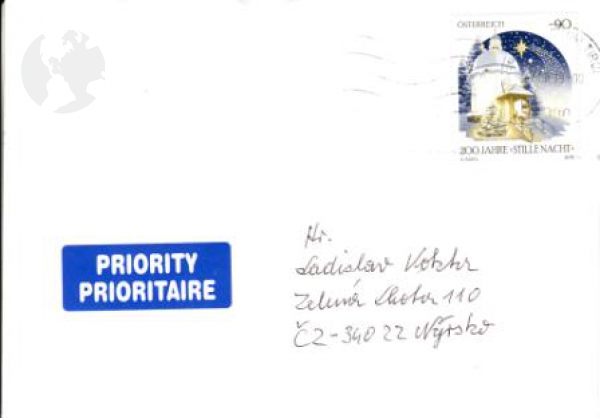 ÖSTERREICH -90
200 JAHRE »STILLE NACHT«
PRIORITY
PRIORITAIRE
Hr.
Ladislav
Zelená Lhota 110
ČZ-340 22 Nýrsko